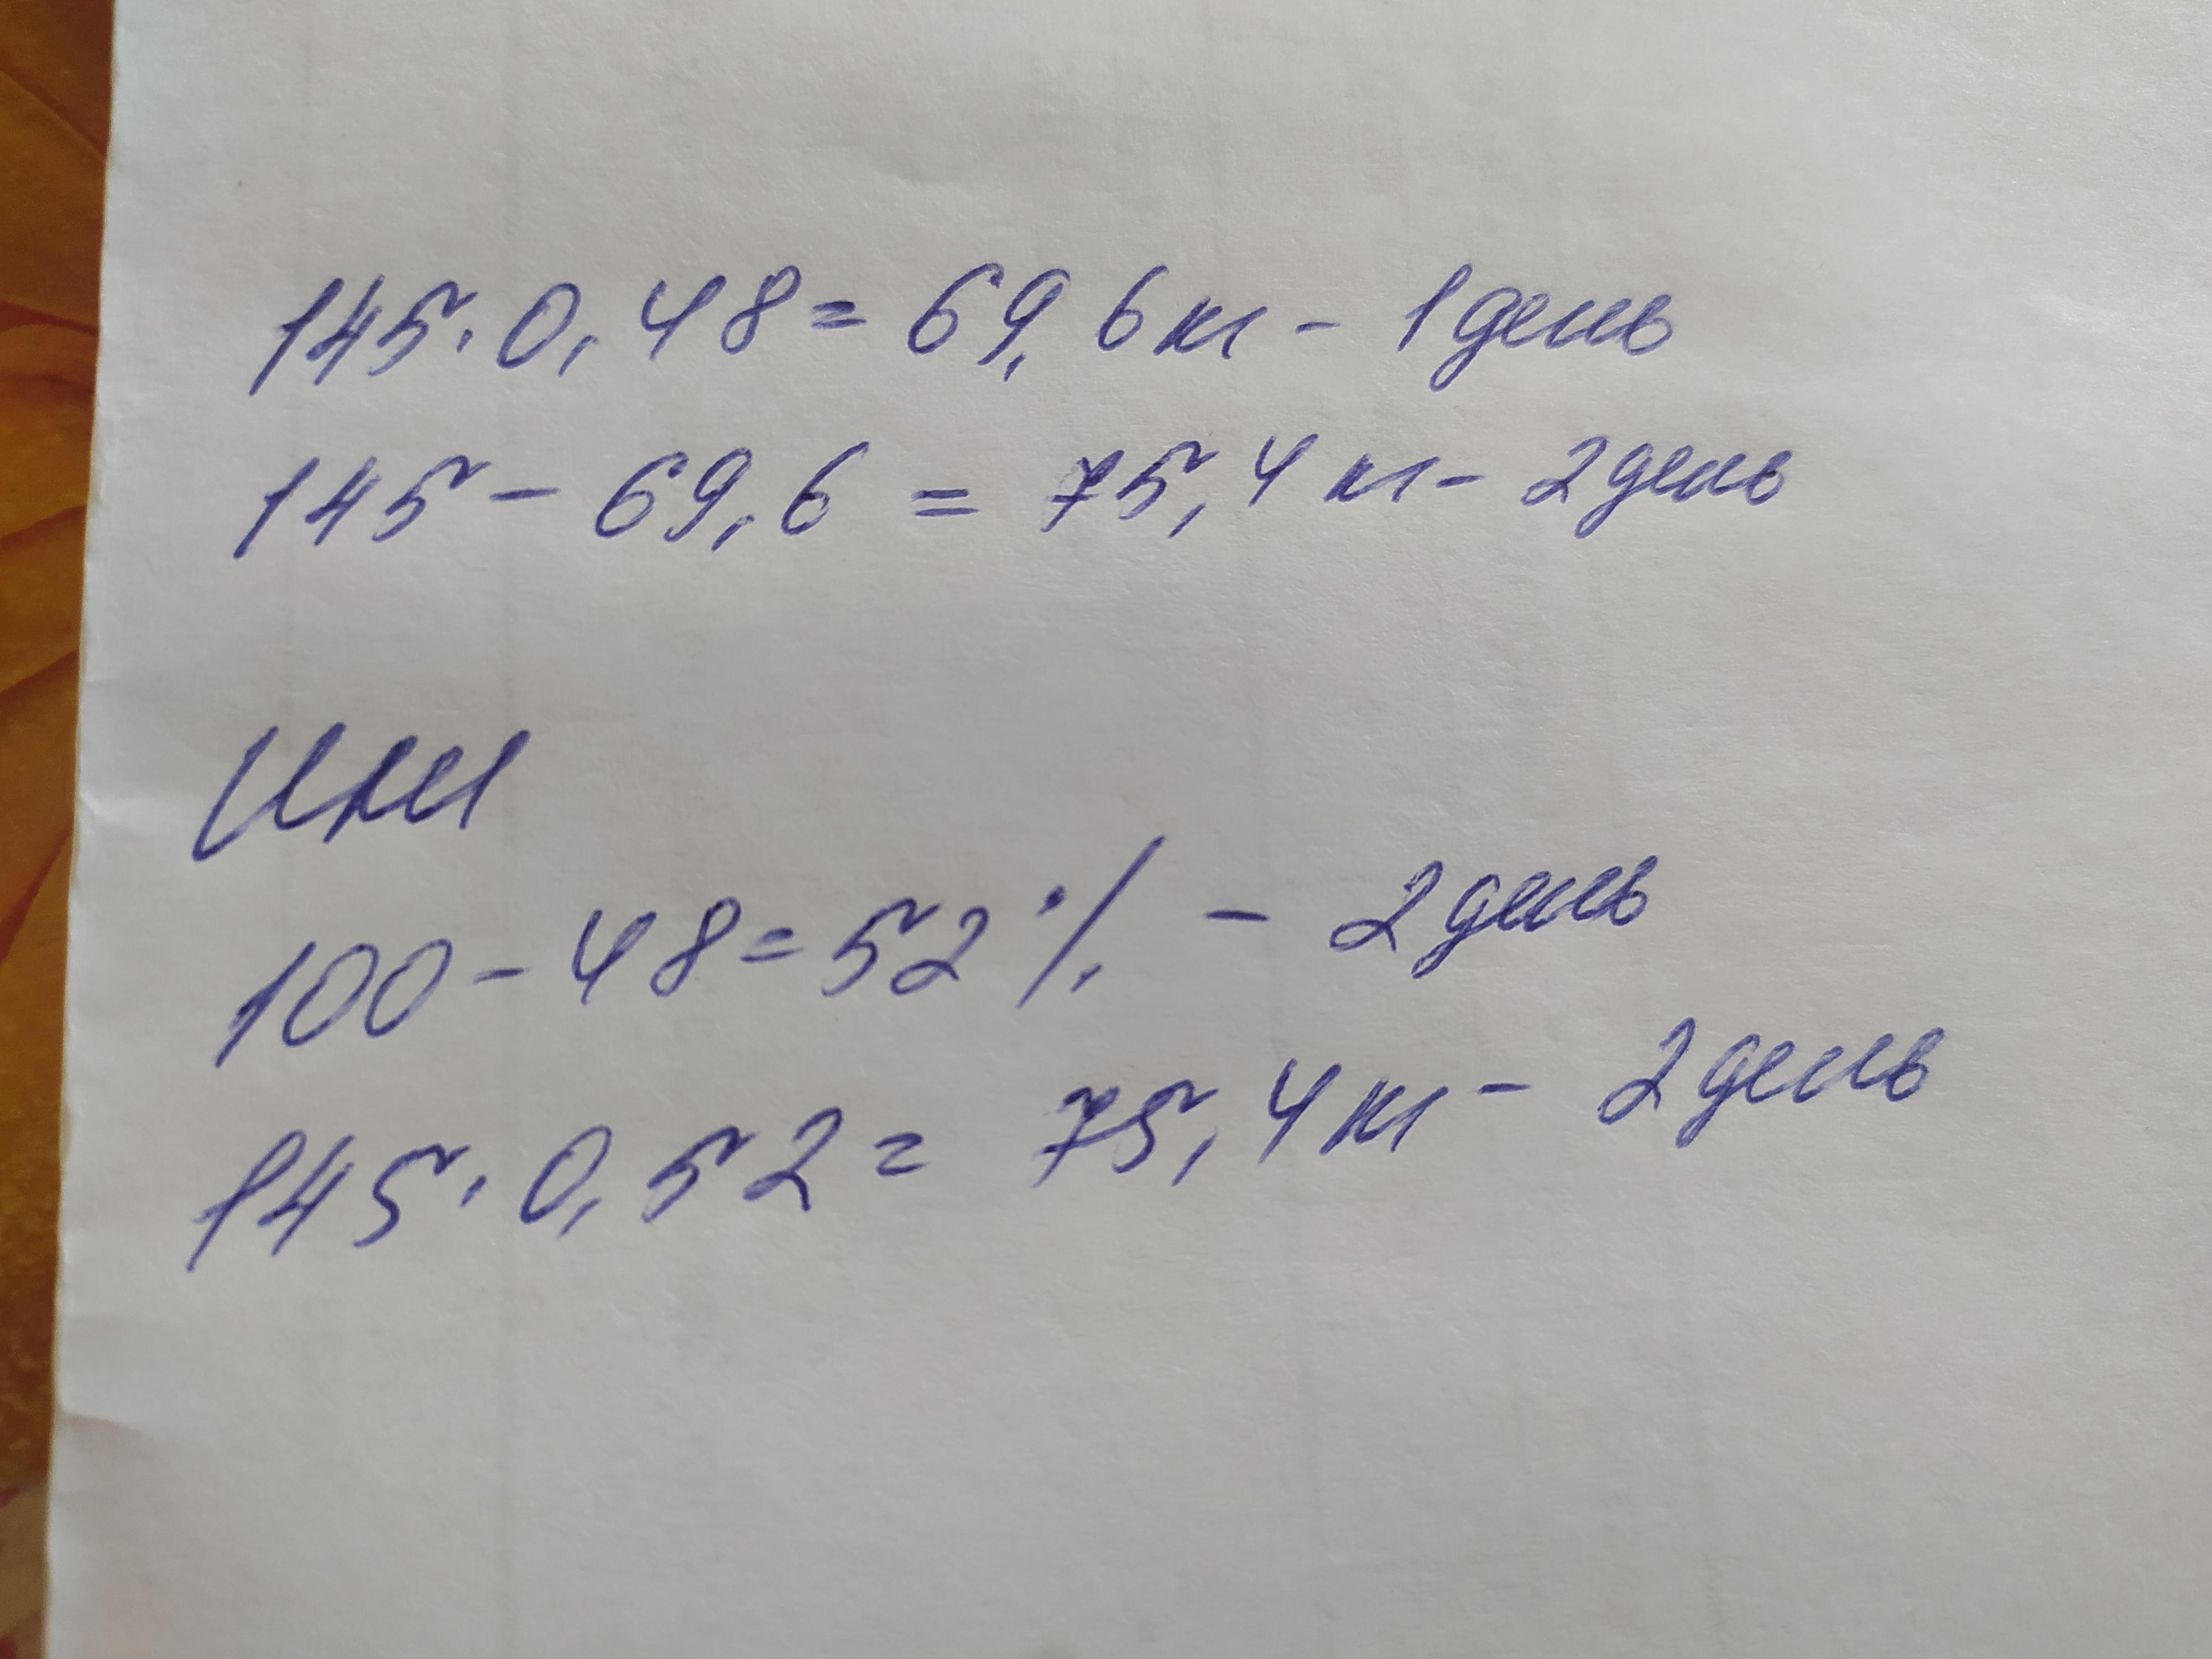 145·0,48=69,6кг-1день
145-69,6=75,4кг-2день
Или
100-48=52%-2день
145·0,52=75,4кг-2день